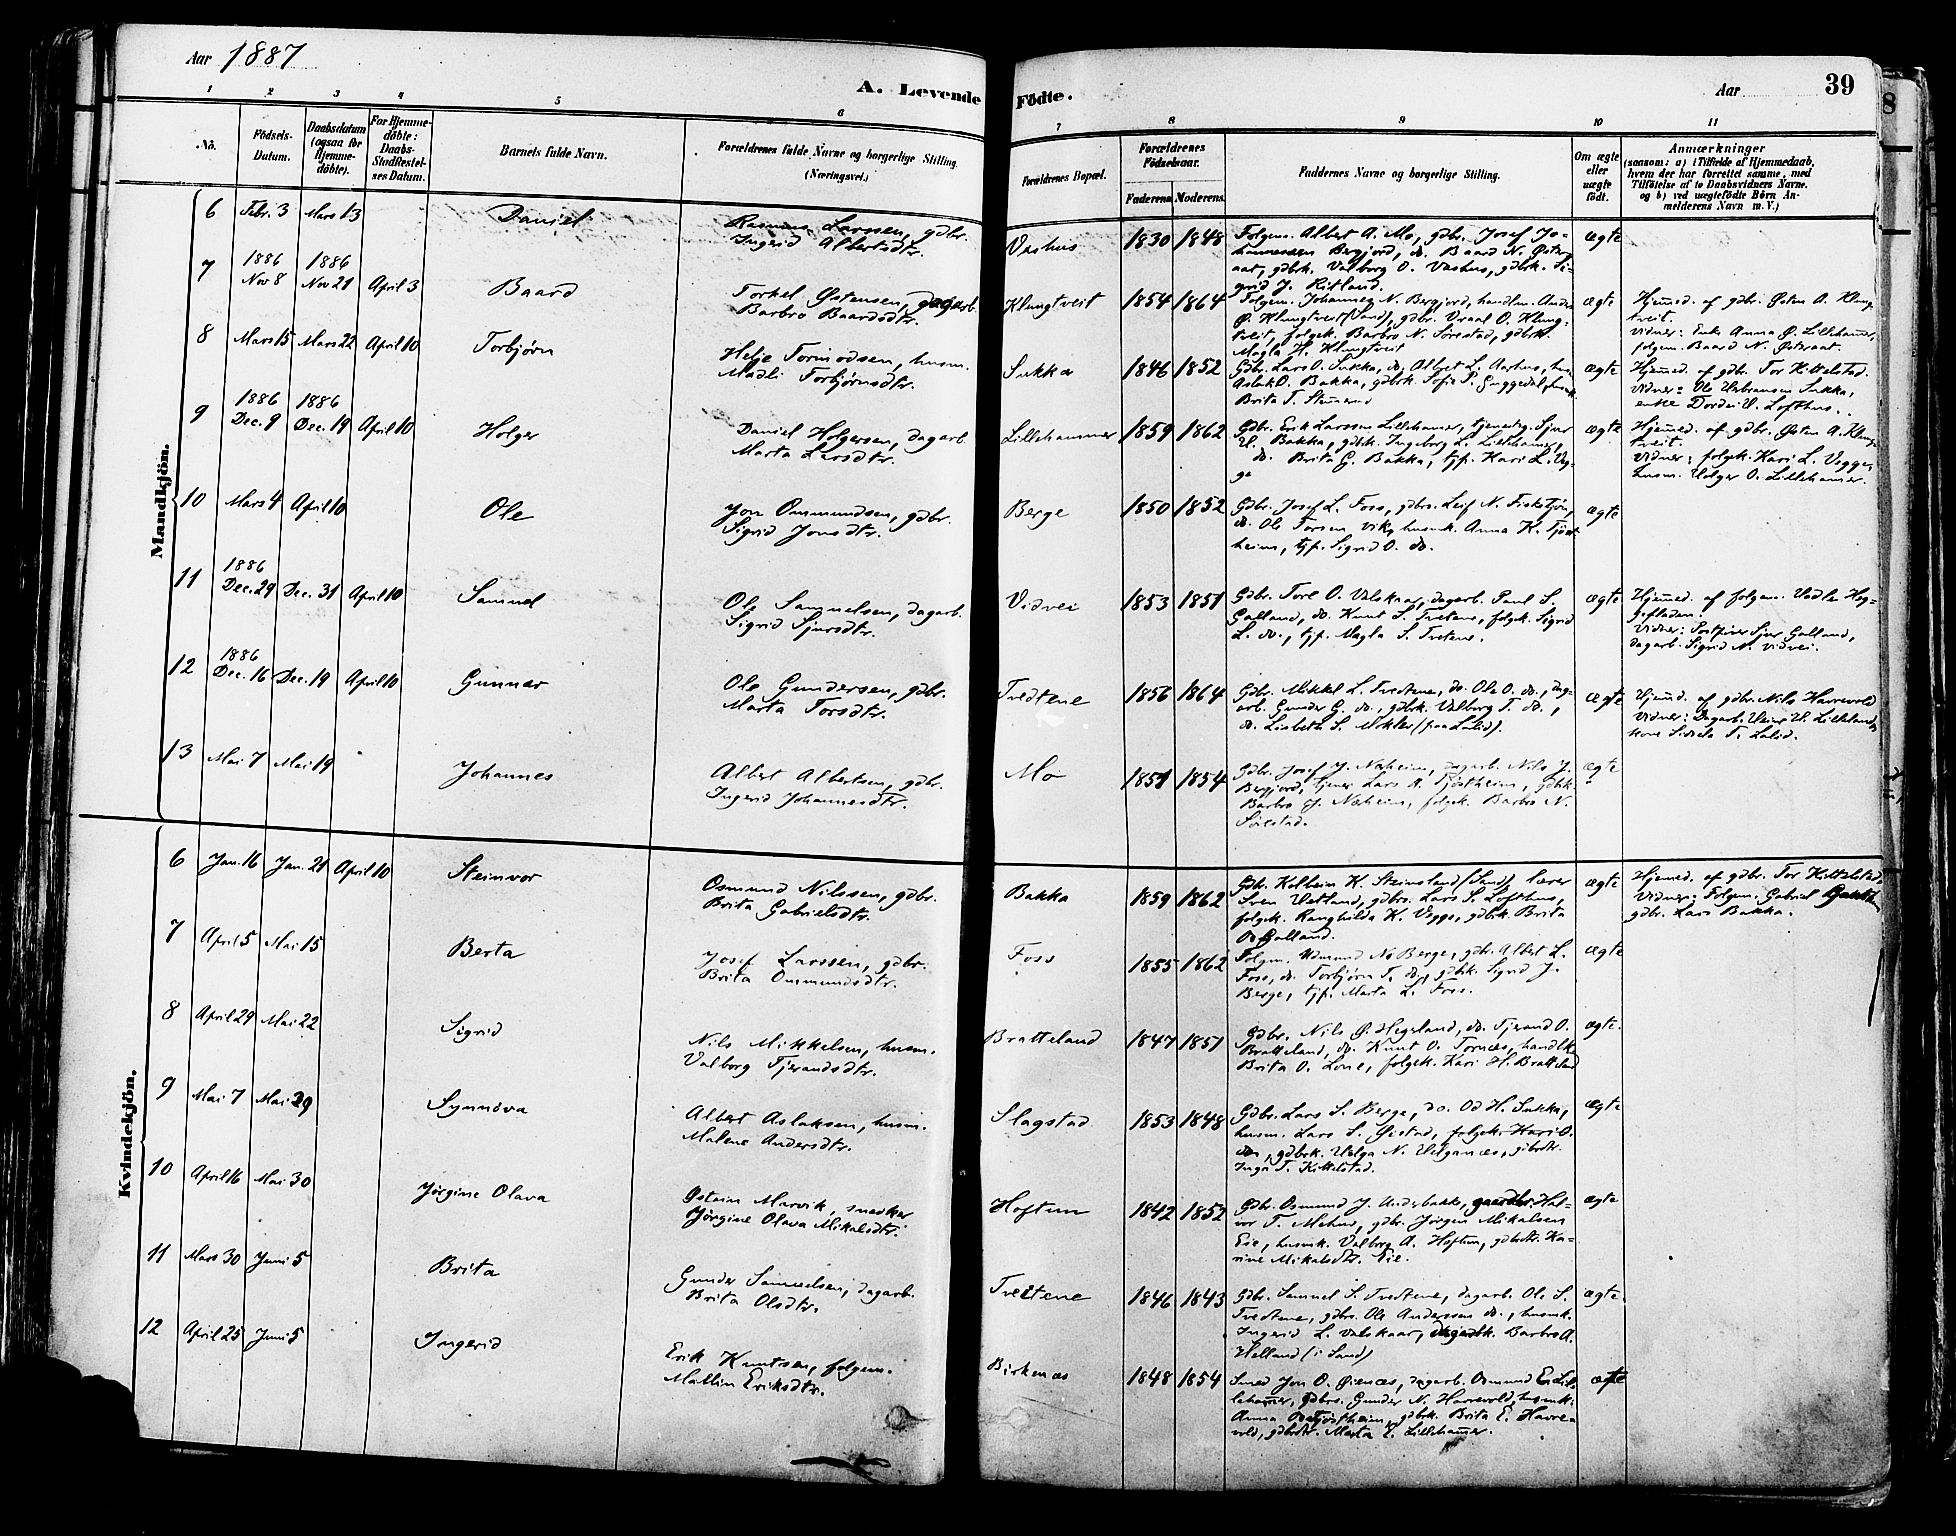 Aar 1887
A. Levende Födte.
Aar 39
1 2 3 4 5 6 7 8 9 10 11
No.
Födsels-Datum.
Daabsdatum (ogsaa for Hjemmedöbte).
For Hjemmedöbte: Daabs-Stadfæstelses Datum.
Barnets fulde Navn.
Forældrenes fulde Navne og borgerlige Stilling. (Næringsvei.)
Forældrenes Bopæl.
Forældrenes Födselsaar.
Faderens. Moderens.
Faddernes Navne og borgerlige Stilling.
Om ægte eller uægte födt.
Anmærkninger
(saasom: a) i Tilfælde af Hjemmedaab, hvem der har forrettet samme, med Tilföielse af to Daabsvidners Navne. og b) ved uægtefödte Börn Anmelderens Navn m. V.)
Mandkjön.
6 Febr. 3 Mars 13 Daniel
Rasmus Larssen, gdbr.
Ingrid Albertsdtr.
1830 1848
Folgem. Albert A. Mo, gdbr. Josef Jo-
ægte
7 1886 Nov 8 1886 Nov 21 April 3 Baard
Torkel Østensen, dagarb.
Barbro Baardsdtr.
Klungtveit 1854 1864
Folgem. Johannes N. Bergjord, handlm. Anders
Ø. Klungtveit (Sand), gdbr. Vraal O. Klung-
tveit, folgek. Barbro N. Sørestad, gdbrk.
Magla H. Klungtveit
ægte
Hjemmed. af gdbr. Østen A. Klung-
tveit.
Vidner: Enke Anna Ø. Lillehamer,
folgem. Baard N. Østraat.
8 Mars 15 Mars 22 April 10 Torbjørn
Helje Tormodsen, husm.
Madli Torbjørnsdtr.
Sukka 1846 1852
Gdbr. Lars O. Sukka, do. Albert L. Aarhus, hm.
Aslak O. Bakka, gdbrk. Sofie P.
Brita T.
ægte
Hjemmed. af gdbr. Tor Kittelstad.
Vidner: Ole Sukka,
enke Lofthus.
9 1886 Dec. 9 1886 Dec. 19 April 10 Holger
Daniel Holgersen, dagarb.
Marta Larsdtr.
Lillehammer 1859 1862
Gdbr. Erik Larssen Lillehamer, Sjur
H. Bakka, gdbrk. Ingeborg L. Lillehamer,
do. Brita G. Bakka, tjp. Kari L. Veg-
ge
ægte
Hjemmed. af gdbr. Østen A. Klung-
tveit.
Vidner: folgek. Kari L. Vegge,
husm. Helger O. Lillehamer.
10 Mars 4 April 10 Ole
Jon Ommundsen, gdbr.
Sigrid Jonsdtr.
Berge 1850 1852
Gdbr. Josef L. Foss, gdbrs. Leif N. Fisketjøn,
do. Ole Torsen Vik, husmk. Anna K. Tjøst-
heim, tjp. Sigrid O. do.
ægte
11 1886 Dec. 29 Dec. 31 April 10 Samuel
Ole Samuelsen, dagarb.
Sigrid Sjursdtr.
Vidvei 1853 1851
Gdbr. Tore O. Valskaar, dagarb. Paul S.
Galland, do. Knut S. Tvetene, folgek. Sigrid
L. do., tjp. Magla S. Tvetene.
ægte
Hjemmed. af folgem.
Vidner: Sjur Galland,
dagarb. Sigrid N. Vidvei.
12 1886 Dec. 16 Dec. 19 April 10 Gunnar
Ole Gundersen, gdbr.
Marta Torsdtr.
Tvedtene 1856 1864
Gdbr. Mikkel L. Tvedtene, do. Ole O. do., dag-
arb. Gunder G. do., gdbrk. Valborg T. do.,
do. Lisbeta S.
ægte
Hjemmed. af gdbr. Nils Harrevold
Vidner: Dagarb. Lilleland,
kone
13 Mai 7 Mai 19 Johannes
Albert Albertsen, gdbr.
Ingerid Johannesdtr.
Mo 1851 1854
Gdbr. Josef J. Næheim, dagarb. Nils J.
Bergjord, tjener Lars A. Tjøstheim, gdbk.
Barbro J. Næheim, folgek. Barbro N.
Sørestad.
ægte
Kvindekjön.
6 Jan. 16 Jan. 21 April 10 Steinvor
Osmund Nilssen, gdbr.
Brita Gabrielsdtr.
Bakka 1859 1862
Gdbr. Kolbein K. Steinsland (Sand), lærer
Sven Vetland, gdbrs. Lars S. Lofthus,
folgek. Ranghilda K. Vegge, gdbrk. Brita
O. Galland.
ægte
Hjemmed. af gdbr. Tor Kittelstad
Vidner: Folgem. Gabriel
gdbr. Lars Bakka.
7 April 5 Mai 15 Berta
Josef Larssen, gdbr.
Brita Ommundsdtr.
Foss 1855 1862
Folgm. Berge, gdbr. Albert L.
Foss, do. Torbjørn T. do., gdbk. Sigrid J.
Berge, tjp. Marta L. Foss.
ægte
8 April 29 Mai 22 Sigrid
Nils Mikkelsen, husm.
Valborg Tjerandsdtr.
Bratteland 1847 1851
Gdbr. Nils Ø. Hegeland, do. Tjerand O.
Bratteland, do. Knut O. Tornæs, handlk.
Brita O. Lone, folgek. Kari H. Bratteland
ægte.
9 Mai 7 Mai 29 Synnöva
Albert Aslaksen, husm.
Malene Andersdtr.
Slagstad 1853 1848
Gdbr. Lars S. Berge, do. Od H. Sukka,
husm. Lars S. Øistad, folgek. Kari O.
do, gdbrk. Helga N. Helganæs, gdbrdtr.
Inga T. Kittelstad.
ægte
10 April 16 Mai 30 Jörgine Olava
Østein Marvik, snedker
Jörgine Olava Mikalsdtr.
Hoftun 1842 1852
Gdbr. Osmund J. Underbakke,
Mæhus, gdbr. Jörgen Mikalsen
Eie, husmk. Valborg A. Hoftun, gdbrdtr. Ka-
rine Mikalsdtr. Eie.
ægte
11 Mars 30 Juni 5 Brita
Gunder Samuelsen, dagarb.
Brita Olsdtr.
Tveitene 1846 1843
Gdbr. Samuel S. Tvedtene, dagarb. Ole S.
Tvedtene, gdbrs. Ole Anderssen do., husmk.
Ingerid L. Valskaar, dagarbk. Barbro A.
Helland (i Sand)
ægte.
12 April 25 Juni 5 Ingerid
Erik Knutsen, folgem.
Mallin Eriksdtr.
Birkenæs 1848 1854
Smed Jon O. Øienæs, dagarb. Osmund E. Lil-
lehammer, gdbrs. Gunder N. Havrevold, husmk.
Anna O. Tjøstheim, gdbrk. Brita E. Havre-
vold, gdbrdtr. Marta E. Lillehammer.
ægte